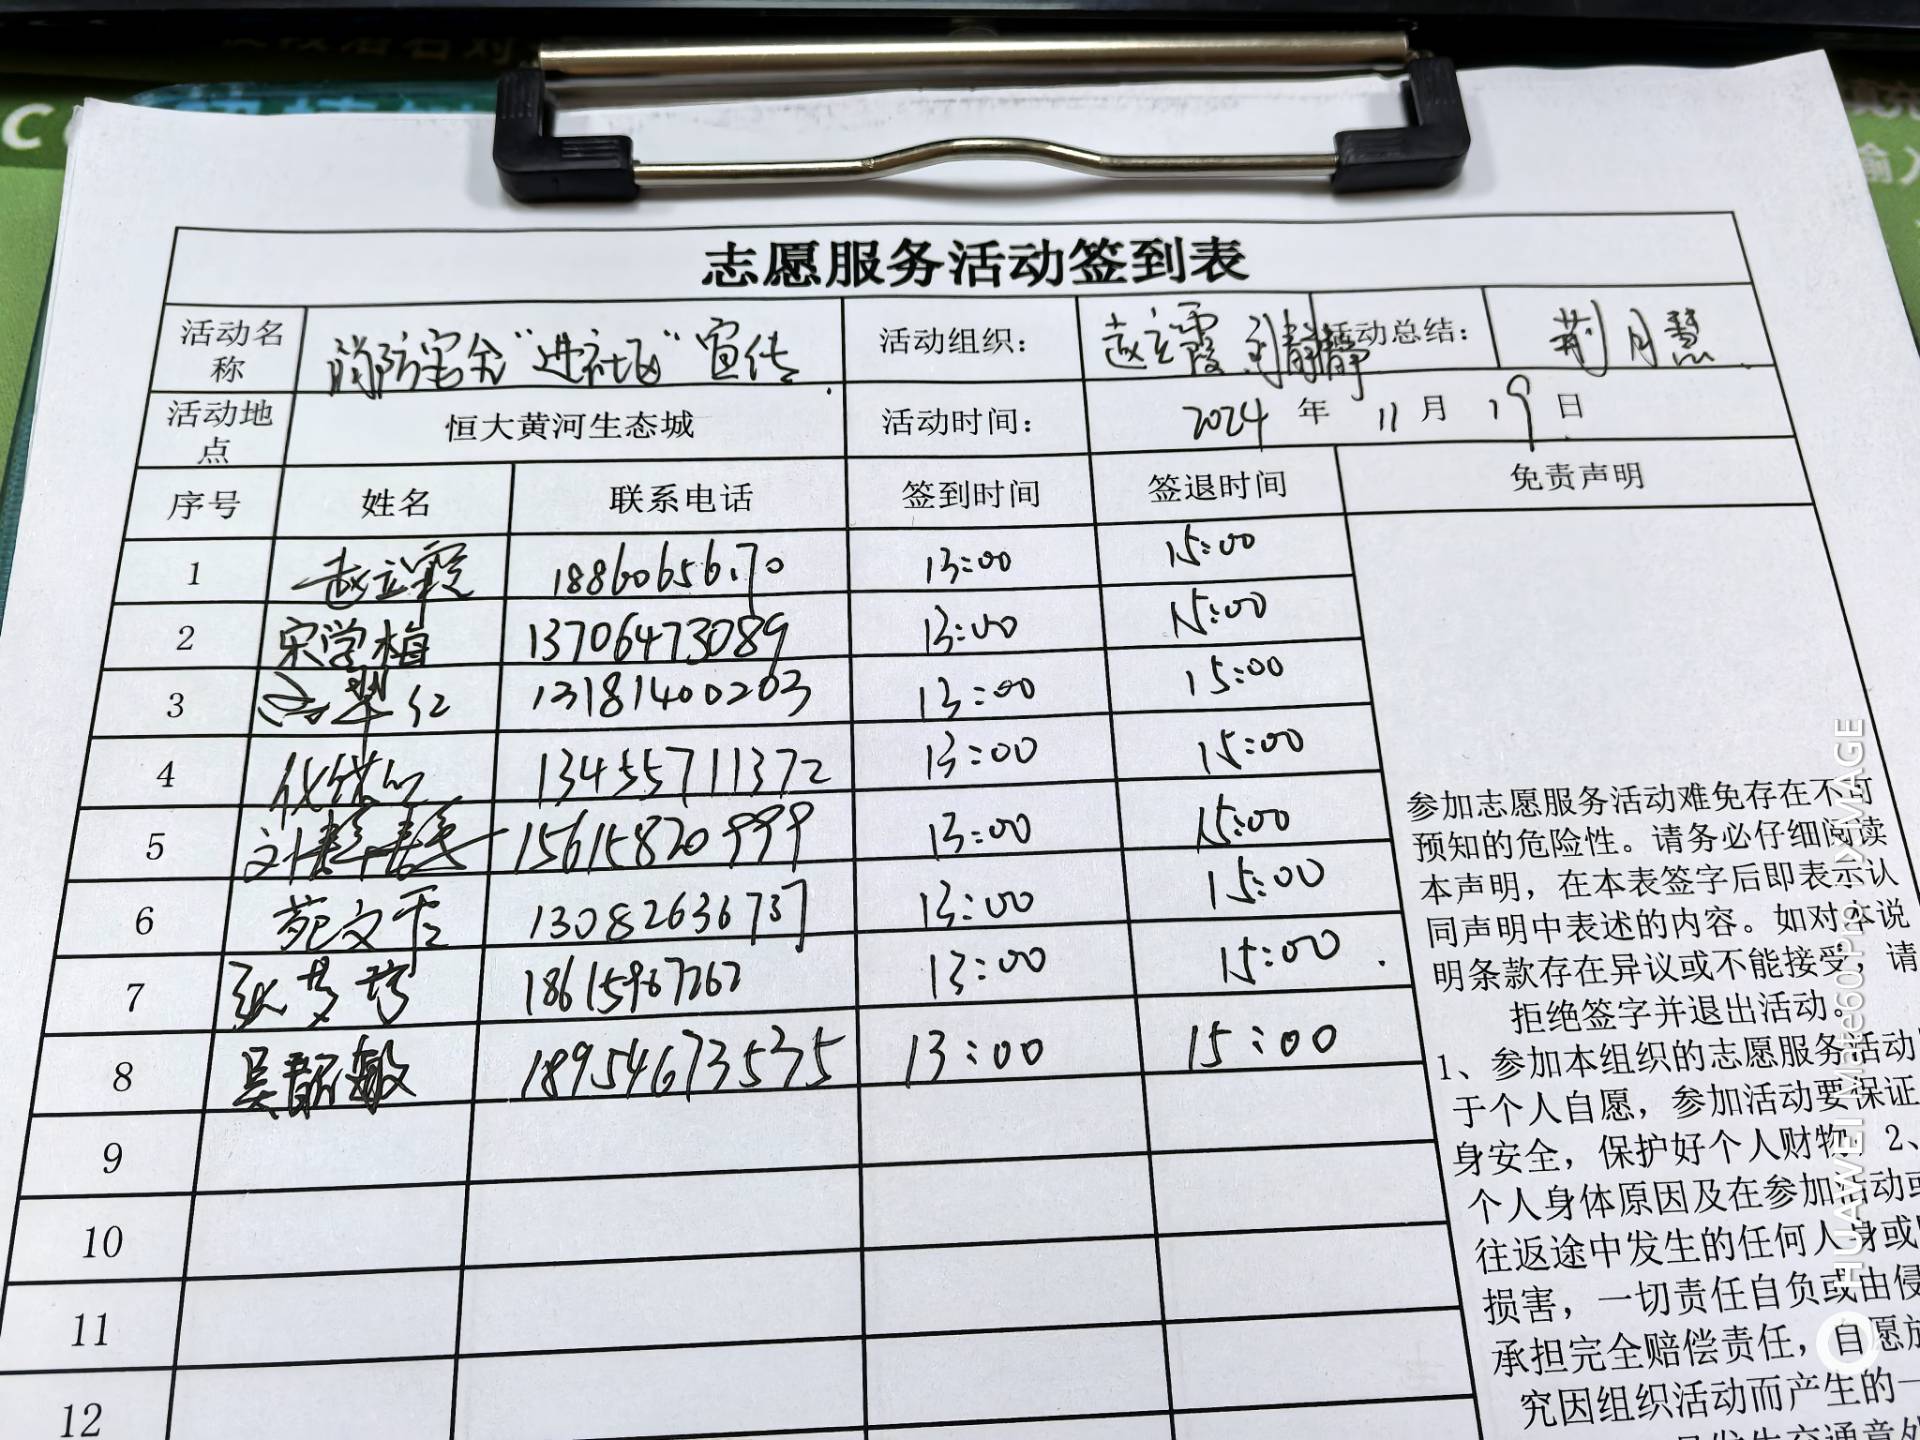 志愿服务活动签到表
活动名称 消防安全“进社区”宣传 活动组织: 赵立霞 刘静静 活动总结: 荆月慧
活动地点 恒大黄河生态城 活动时间: 2024 年 11 月 19 日
序号 姓名 联系电话 签到时间 签退时间 免责声明
1 赵立霞 13:00 15:00
2 宋学梅 13706473089 13:00 15:00
3 13181400203 13:00 15:00
4 13455711372 13:00 15:00
5 15615820999 13:00 15:00
6 苑文云 13082636737 13:00 15:00
7 18615967262 13:00 15:00
8 吴韶敏 18954673535 13:00 15:00
9
10
11
12
参加志愿服务活动难免存在不可
预知的危险性。请务必仔细阅读
本声明，在本表签字后即表示认
同声明中表述的内容。如对本说
明条款存在异议或不能接受，请
拒绝签字并退出活动。
1、参加本组织的志愿服务活动
于个人自愿，参加活动要保证
身安全，保护好个人财物 2、
个人身体原因及在参加活动或
往返途中发生的任何人身或
损害，一切责任自负或由侵
承担完全赔偿责任，自愿放
究因组织活动而产生的一
HUAWEI Mate60 Pro XMAGE